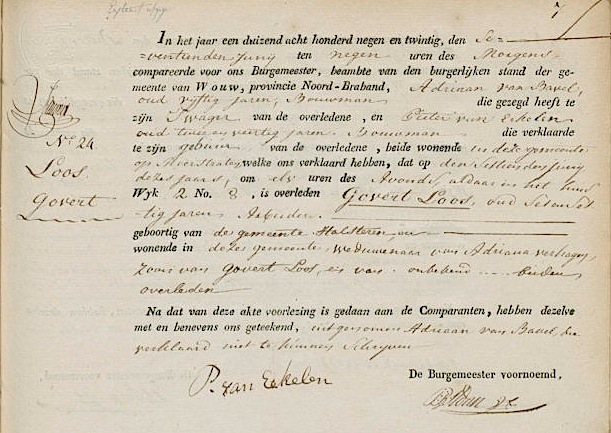 7
In het jaar een duizend acht honderd negen en twintig, den Ze-
ventienden Juny ten negen uren des Morgens
compareerde voor ons Burgemeester, beambte van den burgerlijken stand der ge-
meente van Wouw, provincie Noord-Braband, Adriaan van Bavel,
oud vyftig jaren, Bouwman die gezegd heeft te
zijn Swager van de overledene, en Pieter van Eekelen
oud twee en veertig jaren Bouwman die verklaarde
te zijn gebuur van de overledene, beide wonende in deze gemeente
op welke ons verklaard hebben, dat op den Juny
dezes jaars, om elf uren des Avonds, aldaar in het huis
Wyk 2 No. 8, is overleden Govert Loos, oud
tig jaren Arbeider
geboortig van de gemeente Halsteren, en
wonende in deze gemeente Weduwenaar van Adriana
zoon van Govert Loos, en van onbekend beiden
overleden
No 24
Loos
Govert
Na dat van deze akte voorlezing is gedaan aan de Comparanten, hebben dezelve
met en benevens ons geteekend, uitgenomen Adriaan van Bavel, die
verklaard niet te kunnen Schryven
P. van Eekelen
De Burgemeester voornoemd,